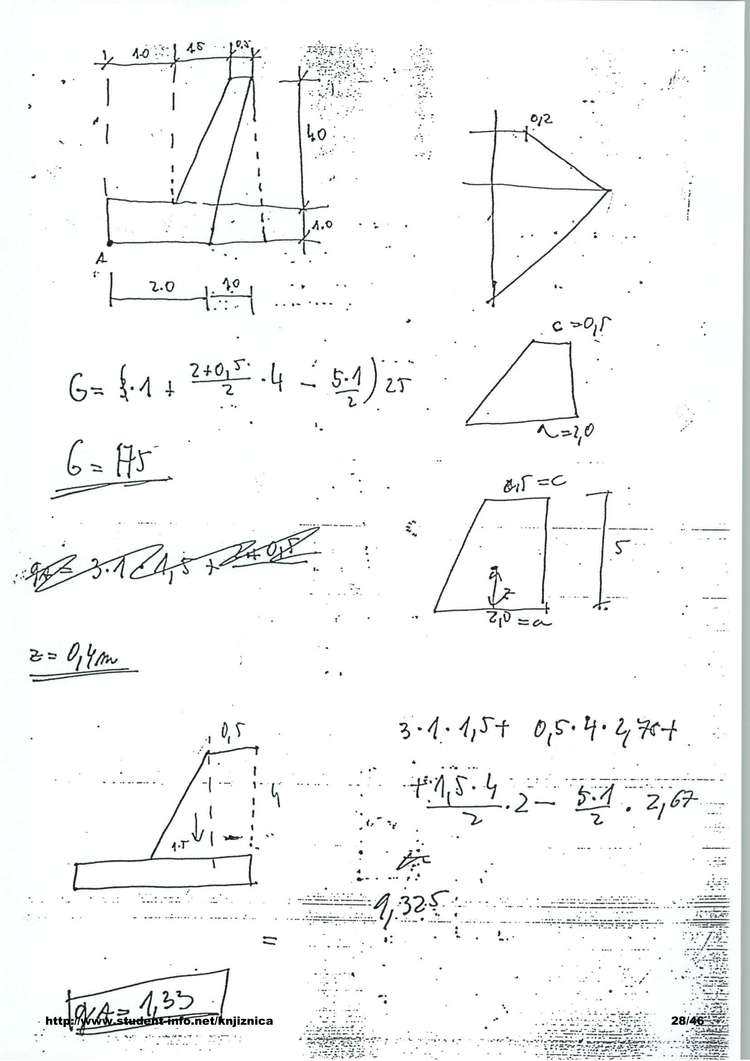 1.0 1.5 0.5
4.0
1.0
A
2.0 1.0
0,2
c=0,5
a=2,0
G= (3·1 + 2+0,5/2 ·4 − 5·1/2) 25
G = 175
0,5 =c
5
z
2,0 =a
3·1·1,5 + 2+0,5
z = 0,4m
0,5
4
1.5
3·1·1,5+ 0,5·4·2,75+
+ 1,5·4/2 ·2 − 5·1/2 · 2,67
9,325
=
= 1,33
http://www.student-info.net/knjiznica 28/46